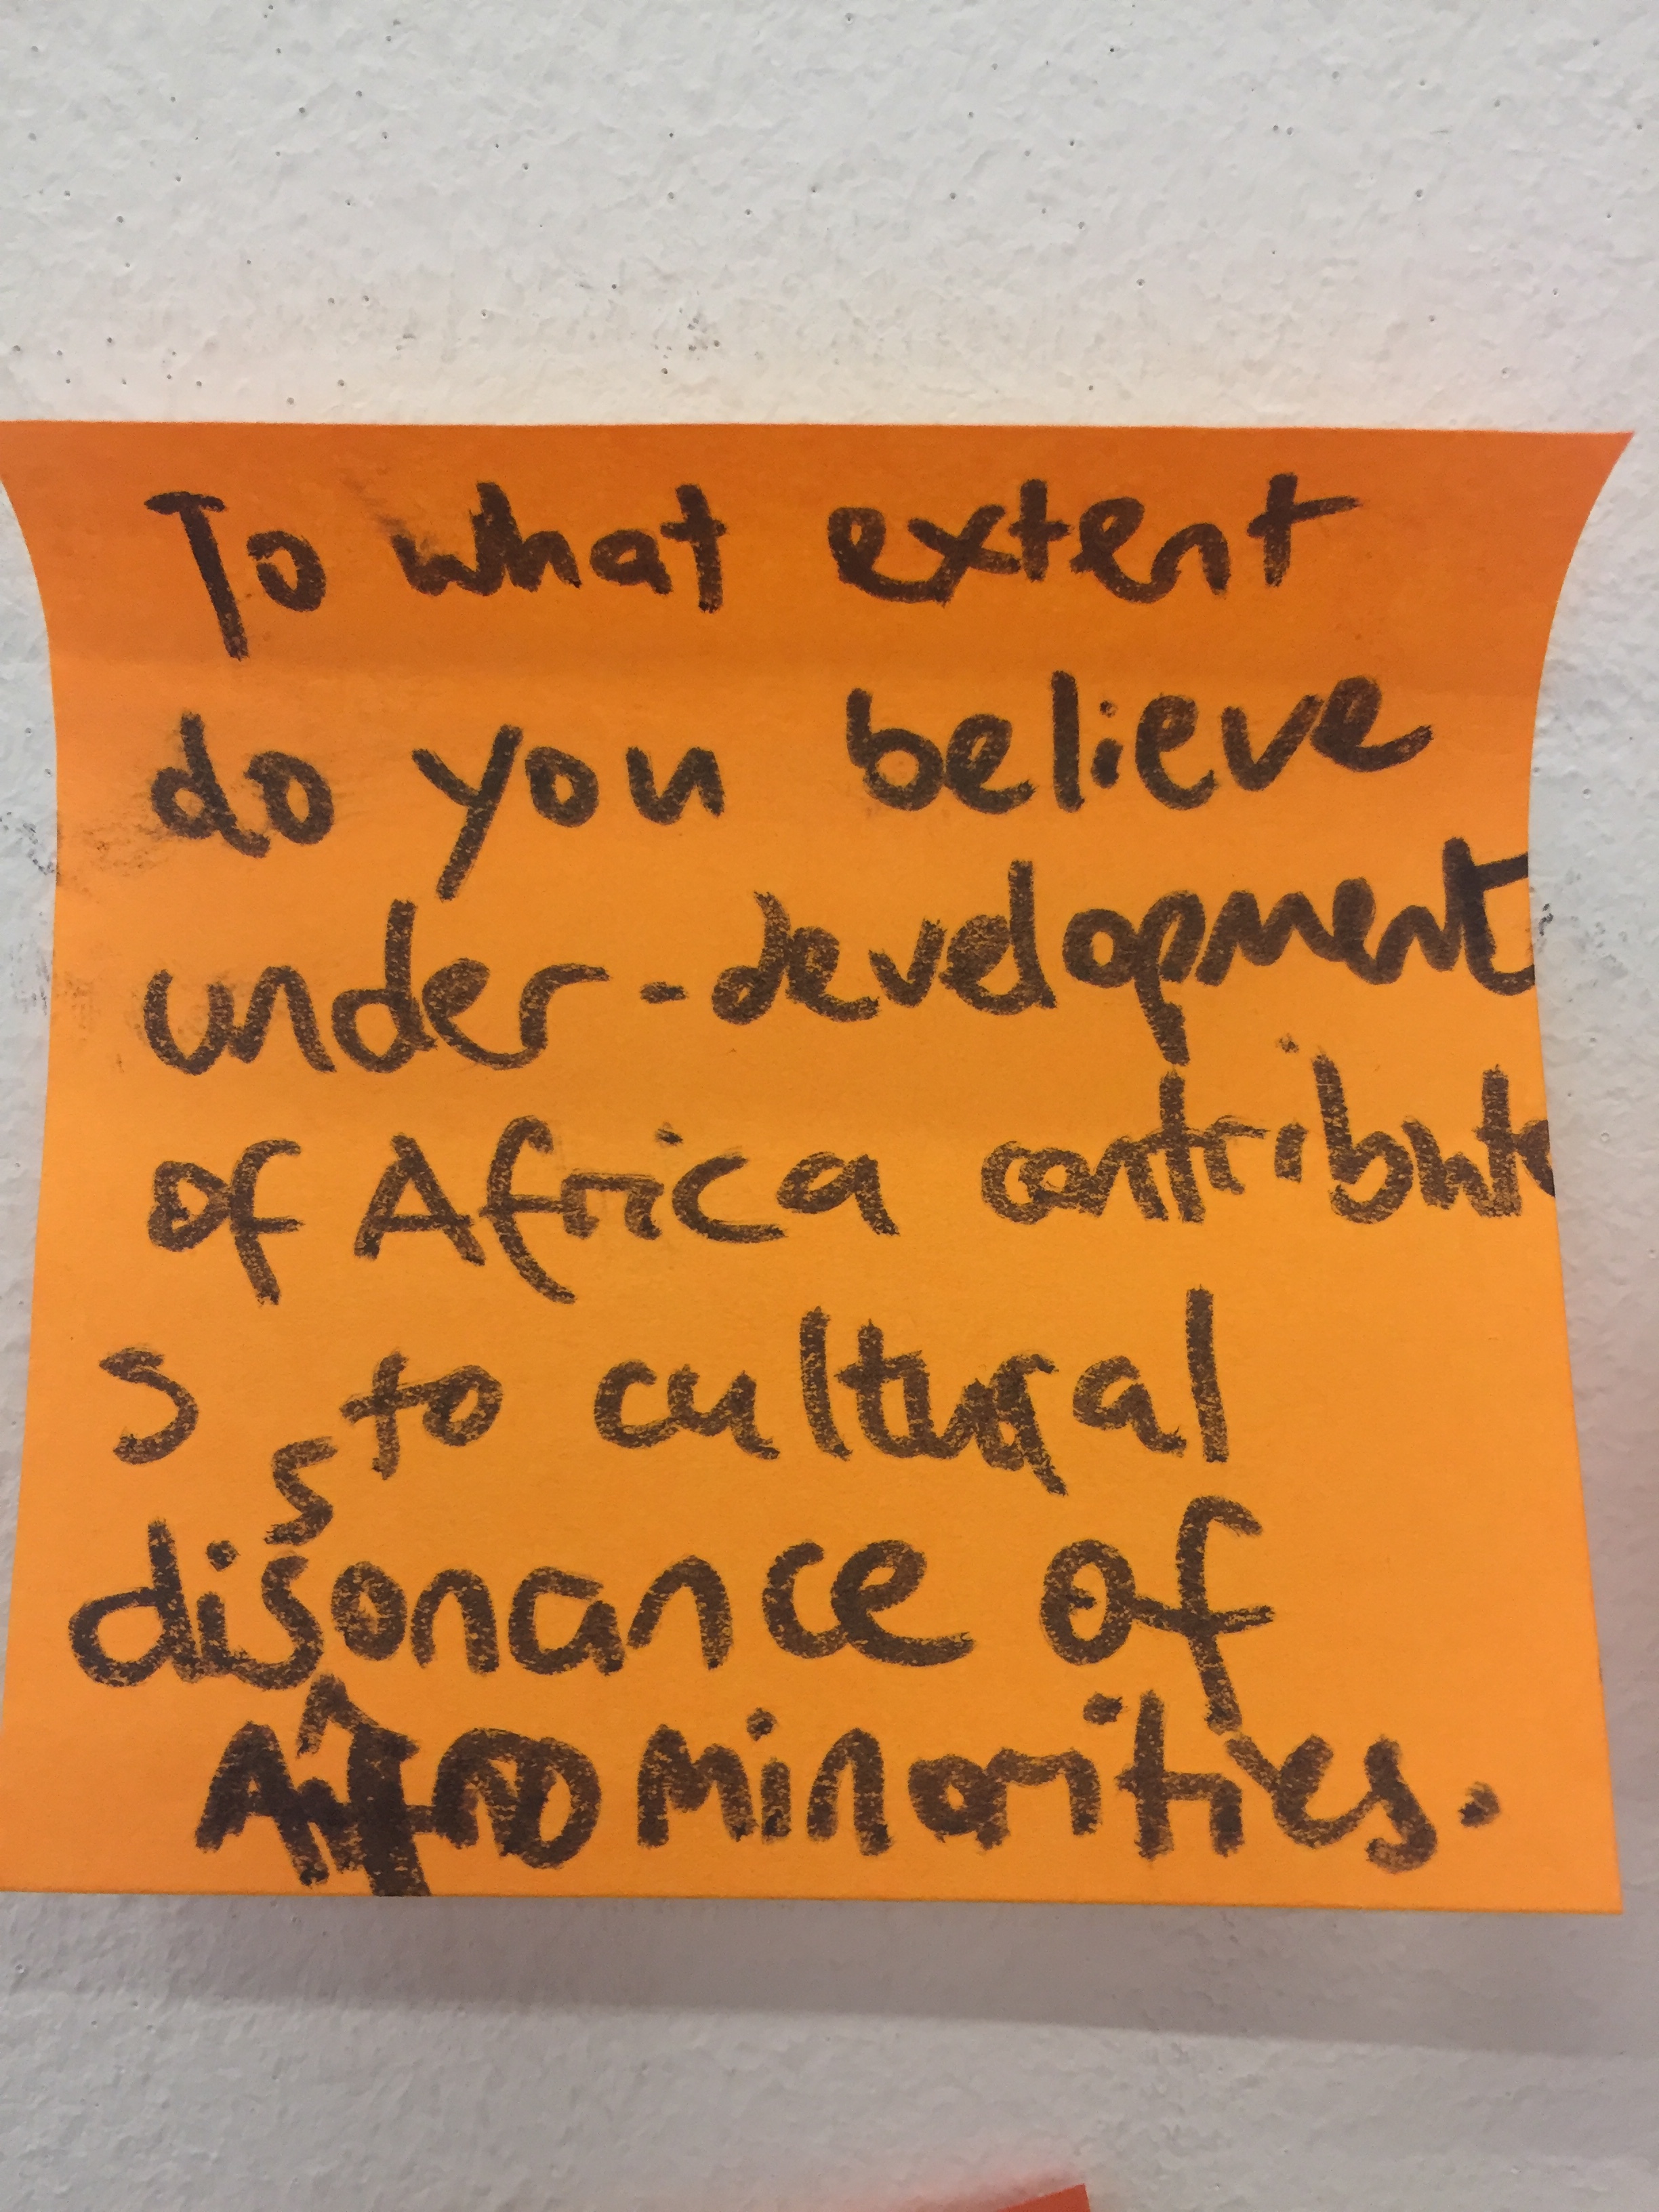 To what extent
do you believe
under-development
of Africa contribute
s to cultural
dissonance of
Afro minorities.